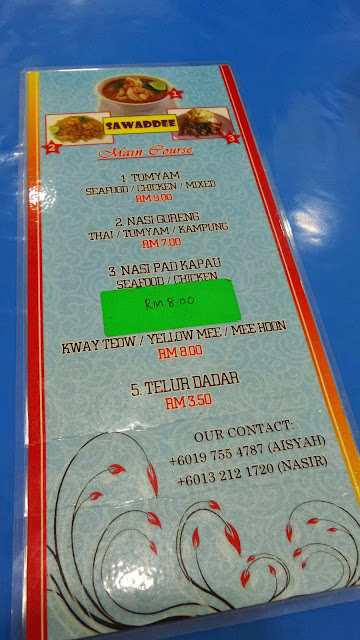 1
SAWADDEE
2
3
Main Course
1. TOMYAM
SEAFOOD / CHICKEN / MIXED
RM 9.00
2. NASI GORENG
THAI / TOMYAM / KAMPUNG
RM 7.00
3. NASI PAD KAPAU
SEAFOOD / CHICKEN
RM 8.00
KWAY TEOW / YELLOW MEE / MEE HOON
RM 8.00
5. TELUR DADAR
RM 3.50
OUR CONTACT:
+6019 755 4787 (AISYAH)
+6013 212 1720 (NASIR)